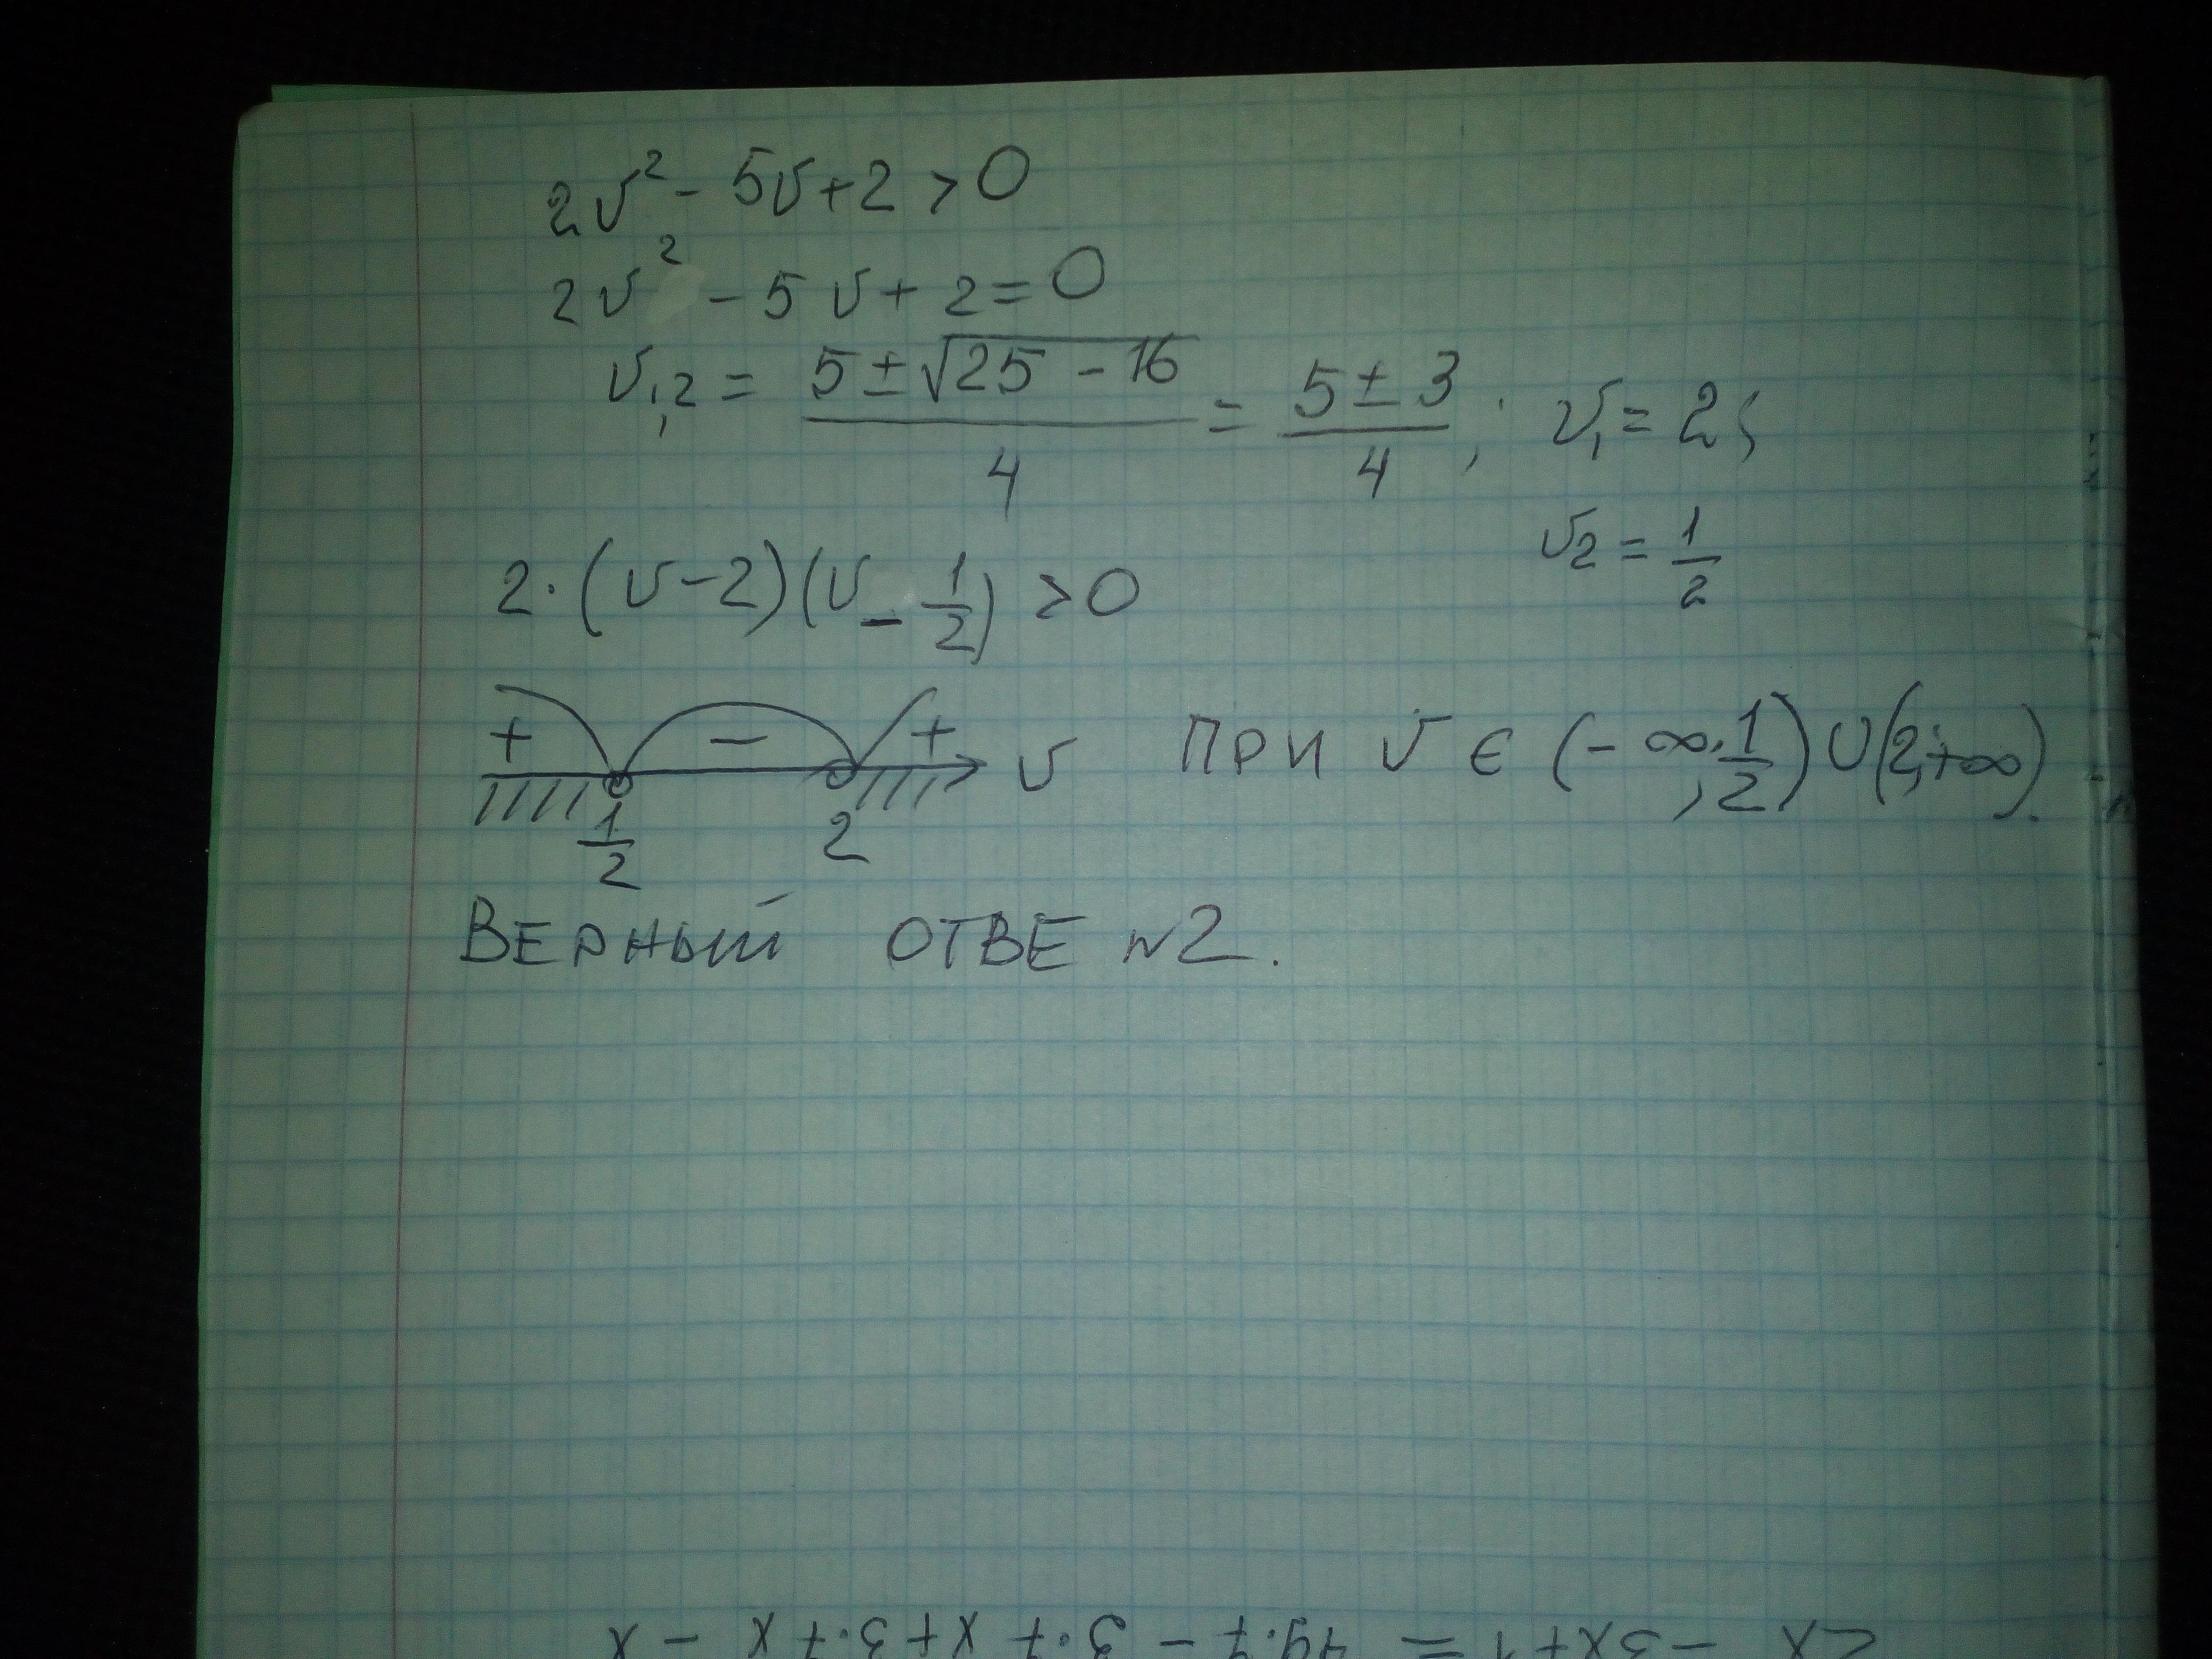 2v² - 5v + 2 > 0
2v² - 5v + 2 = 0
v₁,₂ = (5 ± √(25 - 16))/4 = (5 ± 3)/4; v₁ = 2;
v₂ = 1/2
2·(v - 2)(v - 1/2) > 0
+ - + v ПРИ v ∈ (-∞; 1/2) ∪ (2; +∞).
1/2 2
ВЕРНЫЙ ОТВЕ N2.